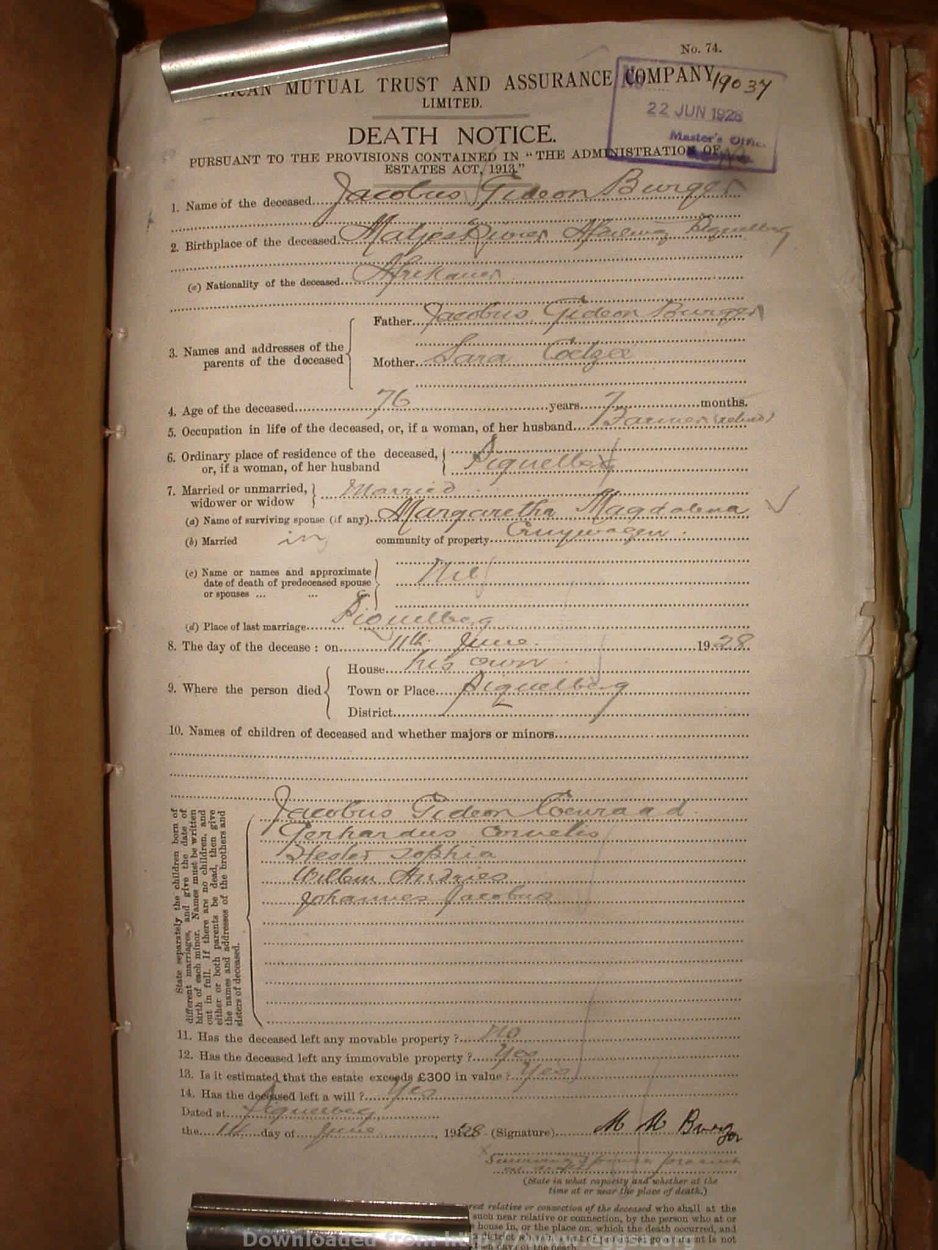 No. 74.
MUTUAL TRUST AND ASSURANCE COMPANY
LIMITED.
No 19037
22 JUN 1928
Master's Office
DEATH NOTICE.
PURSUANT TO THE PROVISIONS CONTAINED IN "THE ADMINISTRATION OF
ESTATES ACT, 1913."
1. Name of the deceased Jacobus Gideon Burger
2. Birthplace of the deceased Matjes Rivier Piquetberg
(a) Nationality of the deceased Afrikaner
3. Names and addresses of the parents of the deceased
Father Jacobus Gideon Burger
Mother Sara Coetzee
4. Age of the deceased 76 years 7 months.
5. Occupation in life of the deceased, or, if a woman, of her husband Farmer (retired)
6. Ordinary place of residence of the deceased, or, if a woman, of her husband Piquetberg
7. Married or unmarried, widower or widow Married
(a) Name of surviving spouse (if any) Margaretha Magdalena
(b) Married in community of property Gruywagen
(c) Name or names and approximate
date of death of predeceased spouse
or spouses ... ... Nil
(d) Place of last marriage Piquetberg
8. The day of the decease : on 11th June 1928
9. Where the person died
House his own
Town or Place Piquetberg
District
10. Names of children of deceased and whether majors or minors
State separately the children born of
different marriages, and give the date of
birth of each minor. Names must be written
out in full. If there are no children, and
either or both parents be dead, then give
the names and addresses of the brothers and
sisters of deceased.
Jacobus Gideon Coenraad
Gerhardus Cornelis
Hester Sophia
Willem Andries
Johannes Jacobus
11. Has the deceased left any movable property ? no
12. Has the deceased left any immovable property ? Yes
13. Is it estimated that the estate exceeds £300 in value ? Yes
14. Has the deceased left a will ? Yes
Dated at Piquetberg
the day of June, 1928 (Signature) M M Burger
Surviving Spouse present
(State in what capacity and whether at the
time at or near the place of death.)
relative or connection of the deceased who shall at the
such near relative or connection, by the person who at or
house in, or the place on, which the death occurred, and
Downloaded from